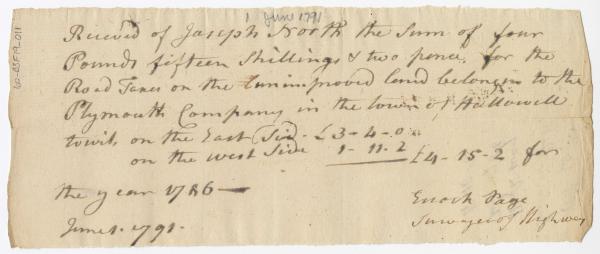 1 June 1791
Received of Joseph North the Sum of four
Pounds fifteen Shillings & two pence, for the
Road Taxes on the Unimproved land belonging to the
Plymouth Company in the town of Hallowell
towit, on the East Side - £3-4-0
on the west Side 1-11-2 £4-15-2 for
the year 1786 —
June 1. 1791.
Enoch Page
Surveyor of Highway